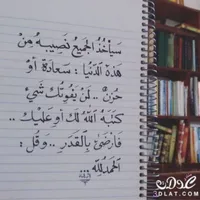 سيأخذ الجميع نصيبه من
هذه الدنيا : سعادة أو
حزن .. لن يفوتك شيء
كتبه الله لك أو عليك ..
فارضى بالقدر .. وقل :
الحمدلله ..
عدلات
3DLAT.COM